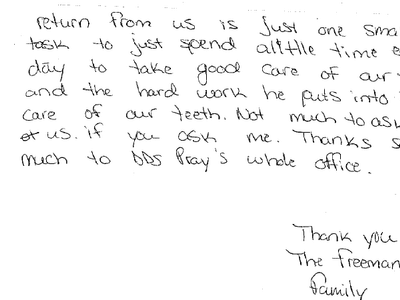 return from us is just one sma
task to just spend alittle time e
day to take good care of our
and the hard work he puts into
care of our teeth. Not much to ask
of us. if you ask me. Thanks s
much to DDS Pray's whole office.
Thank you
The Freeman
Family